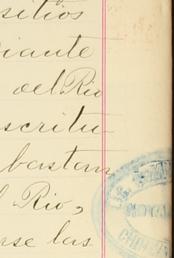 sitios
diante
del Rio
scritu
bastan
l Rio,
rse las